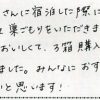 さんに宿泊した際に
巣ごもりをいただき
おいしくて、3箱購入
ました。みんなにおす
いと思います!